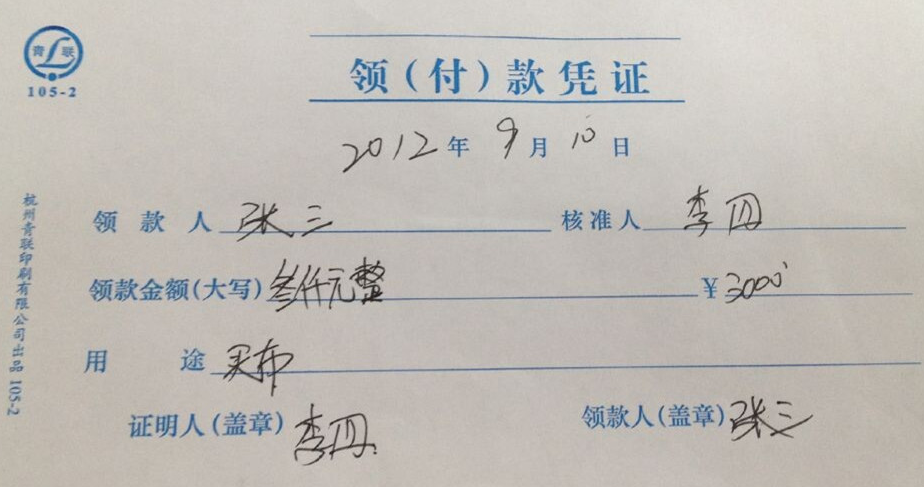 青联
105-2
领（付）款凭证
2012年 9月 10日
领款人 张三 核准人 李四
领款金额(大写) 叁仟元整 ¥3000
用途 买布
证明人(盖章) 李四 领款人(盖章) 张三
杭州青联印刷有限公司出品 105-2